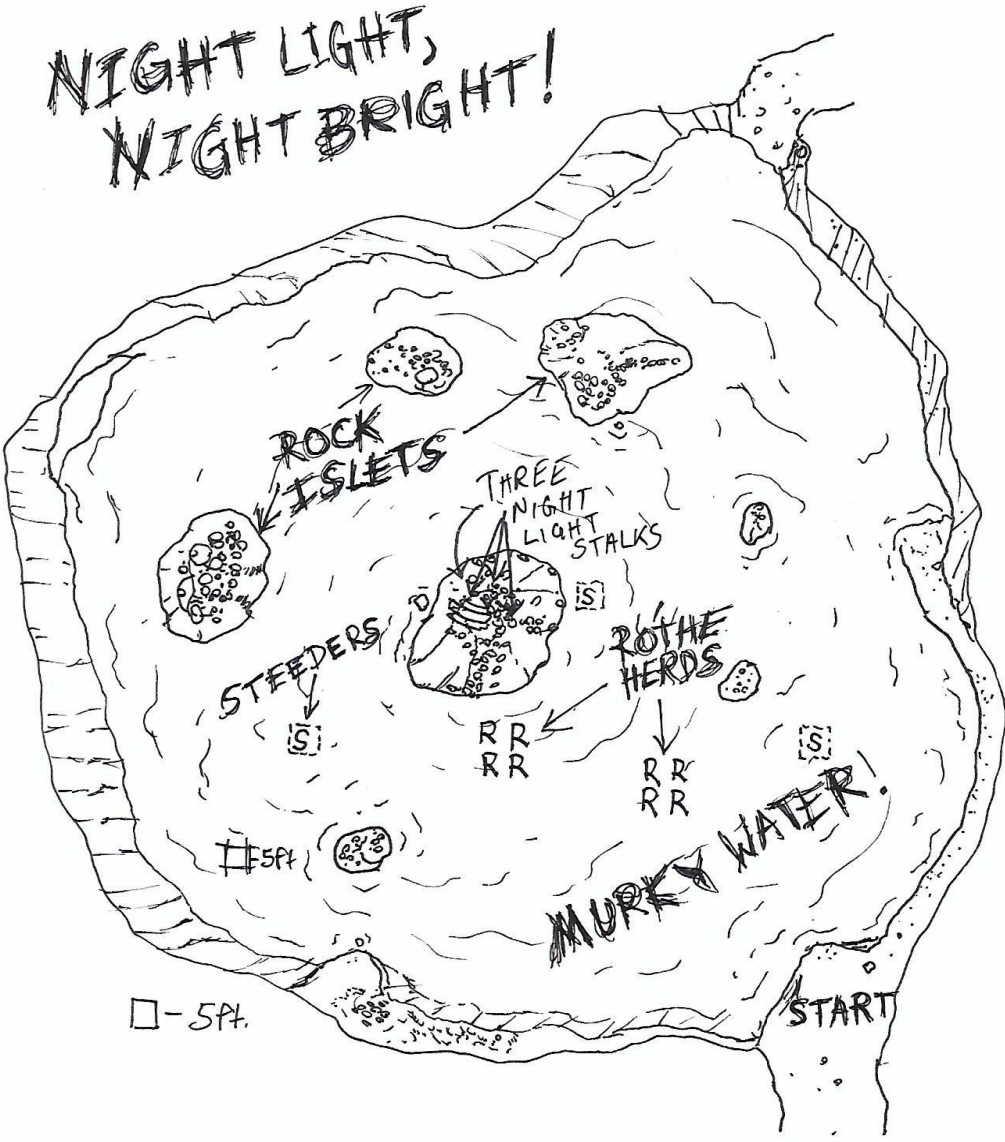 NIGHT LIGHT,
NIGHT BRIGHT!
ROCK
ISLETS
THREE
NIGHT
LIGHT
STALKS
S
STEEDERS
S
ROTHE
HERDS
R R
R R
R R
R R
S
MURKY WATER!
5ft
START
- 5ft.